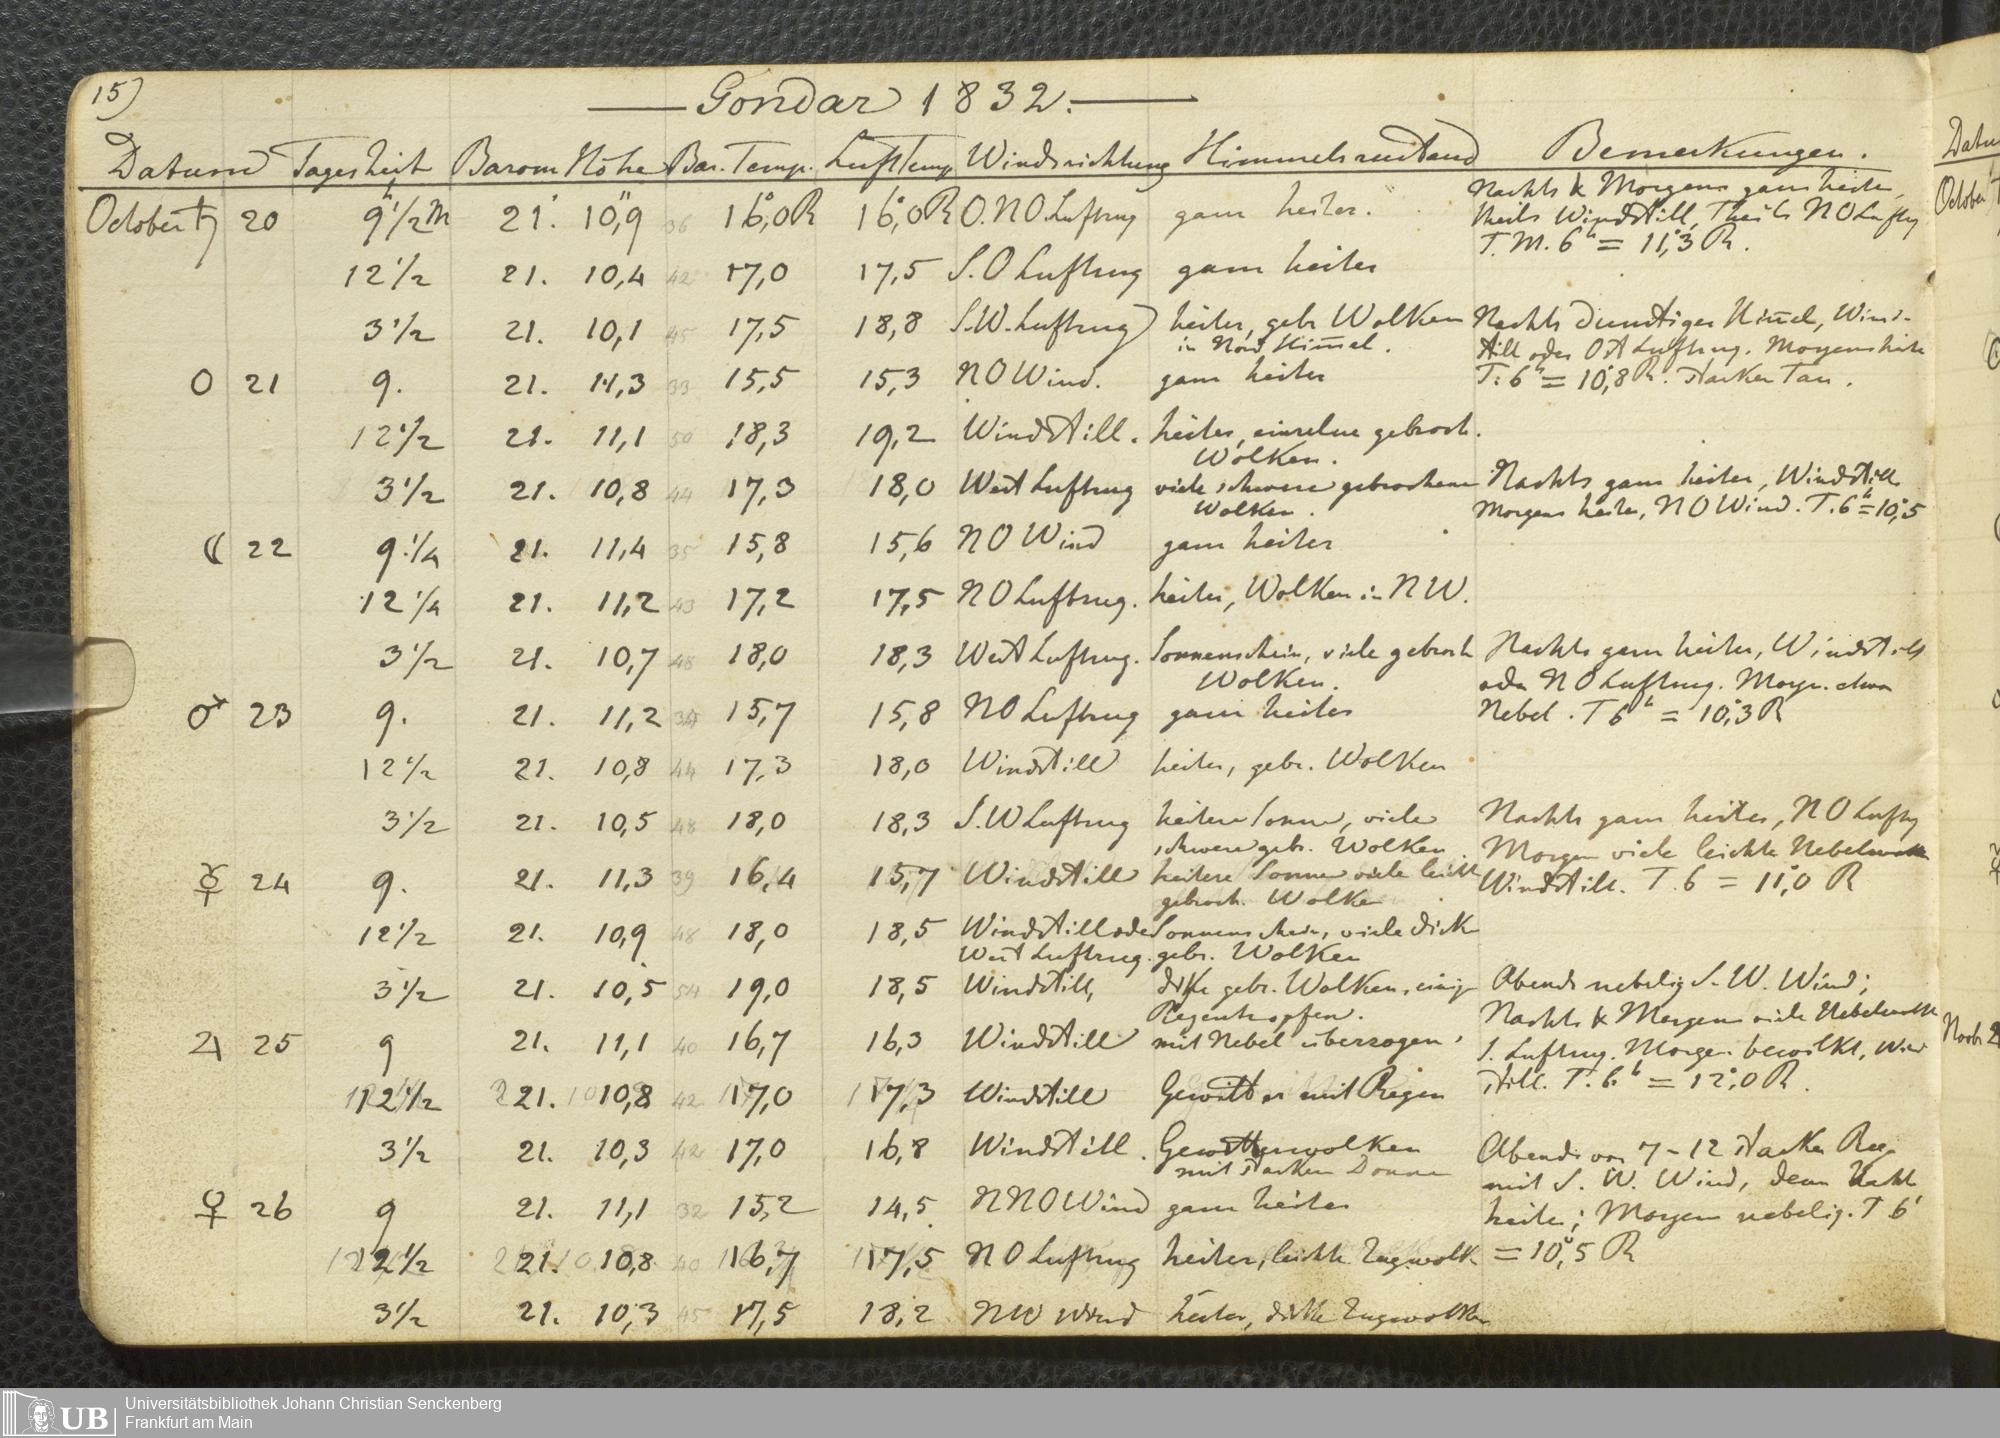 15)
Gondar 1832.
Datum Tageszeit Barom Höhe Bar. Temp. LuftTemp Windsrichtung Himmelszustand Bemerkungen.
October ♄ 20 9h 1/2 M 21.' 10,''9 36 16,°0 R 16,°0 R O.NO Luftzug ganz heiter. Nachts & Morgens ganz heiter,
theils Windstill, Theils NO Luftzg
T. M. 6h = 11,°3 R.
12 1/2 21. 10,4 42 17,0 17,5 S.O Luftzug ganz heiter
3 1/2 21. 10,1 45 17,5 18,8 S.W. Luftzug heiter, gebr Wolken Nachts dunstiger Him̄el, Wind-
in Nord Him̄el. still oder Ost Luftzug. Morgens heiter
☉ 21 9. 21. 11,3 33 15,5 15,3 NO Wind. ganz heiter T. 6h = 10,°8 R. starker Tau.
12 1/2 21. 11,1 50 18,3 19,2 Windstill. heiter, einzelne gebroch.
Wolken.
3 1/2 21. 10,8 44 17,3 18,0 West Luftzug viele schwere gebrochene Nachts ganz heiter, Windstill
Wolken. Morgens heiter, NO Wind. T. 6h = 10,°5
☾ 22 9 1/4 21. 11,4 35 15,8 15,6 NO Wind ganz heiter
12 1/4 21. 11,2 43 17,2 17,5 NO Luftzug. heiter, Wolken in NW.
3 1/2 21. 10,7 48 18,0 18,3 West Luftzug. Sonnenschein, viele gebroch Nachts ganz heiter, Windstill
Wolken. oder NO Luftzug. Morgn. etwas
♂ 23 9. 21. 11,2 34 15,7 15,8 NO Luftzug ganz heiter Nebel. T 6h = 10,°3 R
12 1/2 21. 10,8 44 17,3 18,0 Windstill heiter, gebr. Wolken
3 1/2 21. 10,5 48 18,0 18,3 S.W Luftzug heitere Sonne, viele Nachts ganz heiter, NO Luftzg
schwere gebr. Wolken Morgen viele leichte Nebelwolken
☿ 24 9. 21. 11,3 39 16,4 15,7 Windstill heitere Sonne viele leicht Windstill. T. 6 = 11,°0 R
gebroch. Wolken
12 1/2 21. 10,9 48 18,0 18,5 Windstill oder Sonnenschein, viele dick
West Luftzug. gebr. Wolken
3 1/2 21. 10,5 54 19,0 18,5 Windstill, dike gebr. Wolken, einige Abends nebelig S.W. Wind;
Regentropfen. Nachts & Morgens viele Nebelwolk
♃ 25 9 21. 11,1 40 16,7 16,3 Windstill mit Nebel überzogen, S. Luftzug. Morgen bewölkt, Wind
12 1/2 21. 10,8 42 17,0 17,3 Windstill Gewitter mit Regen still. T. 6h = 12,°0 R.
3 1/2 21. 10,3 42 17,0 16,8 Windstill. Gewitterwolken Abends von 7-12 starker Reg
mit starken Donner mit S.W. Wind, dann Nacht
♀ 26 9 21. 11,1 32 15,2 14,5 NNO Wind ganz heiter heiter; Morgen nebelig. T 6h
12 1/2 21. 10,8 40 16,7 17,5 NO Luftzug heiter, leichte Zugwolk = 10,°5 R
3 1/2 21. 10,3 45 17,5 18,2 NW Wind heiter, dikke Zugwolken
Datu
October
Novbr 2
UB
Universitätsbibliothek Johann Christian Senckenberg
Frankfurt am Main